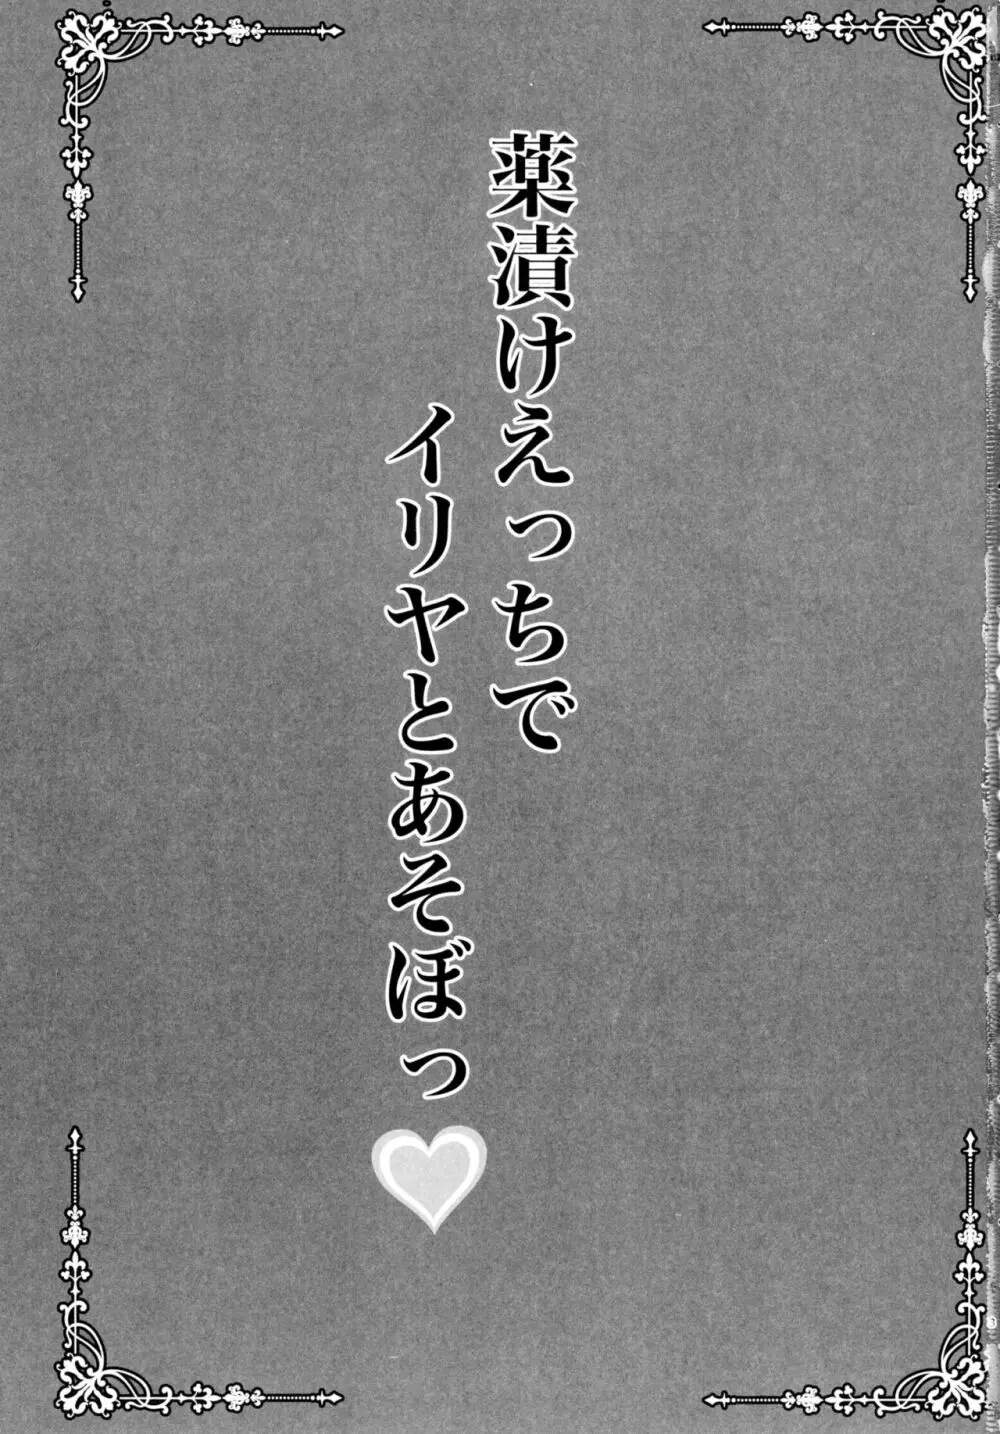 薬漬けえっちで
イリヤとあそぼっ♡